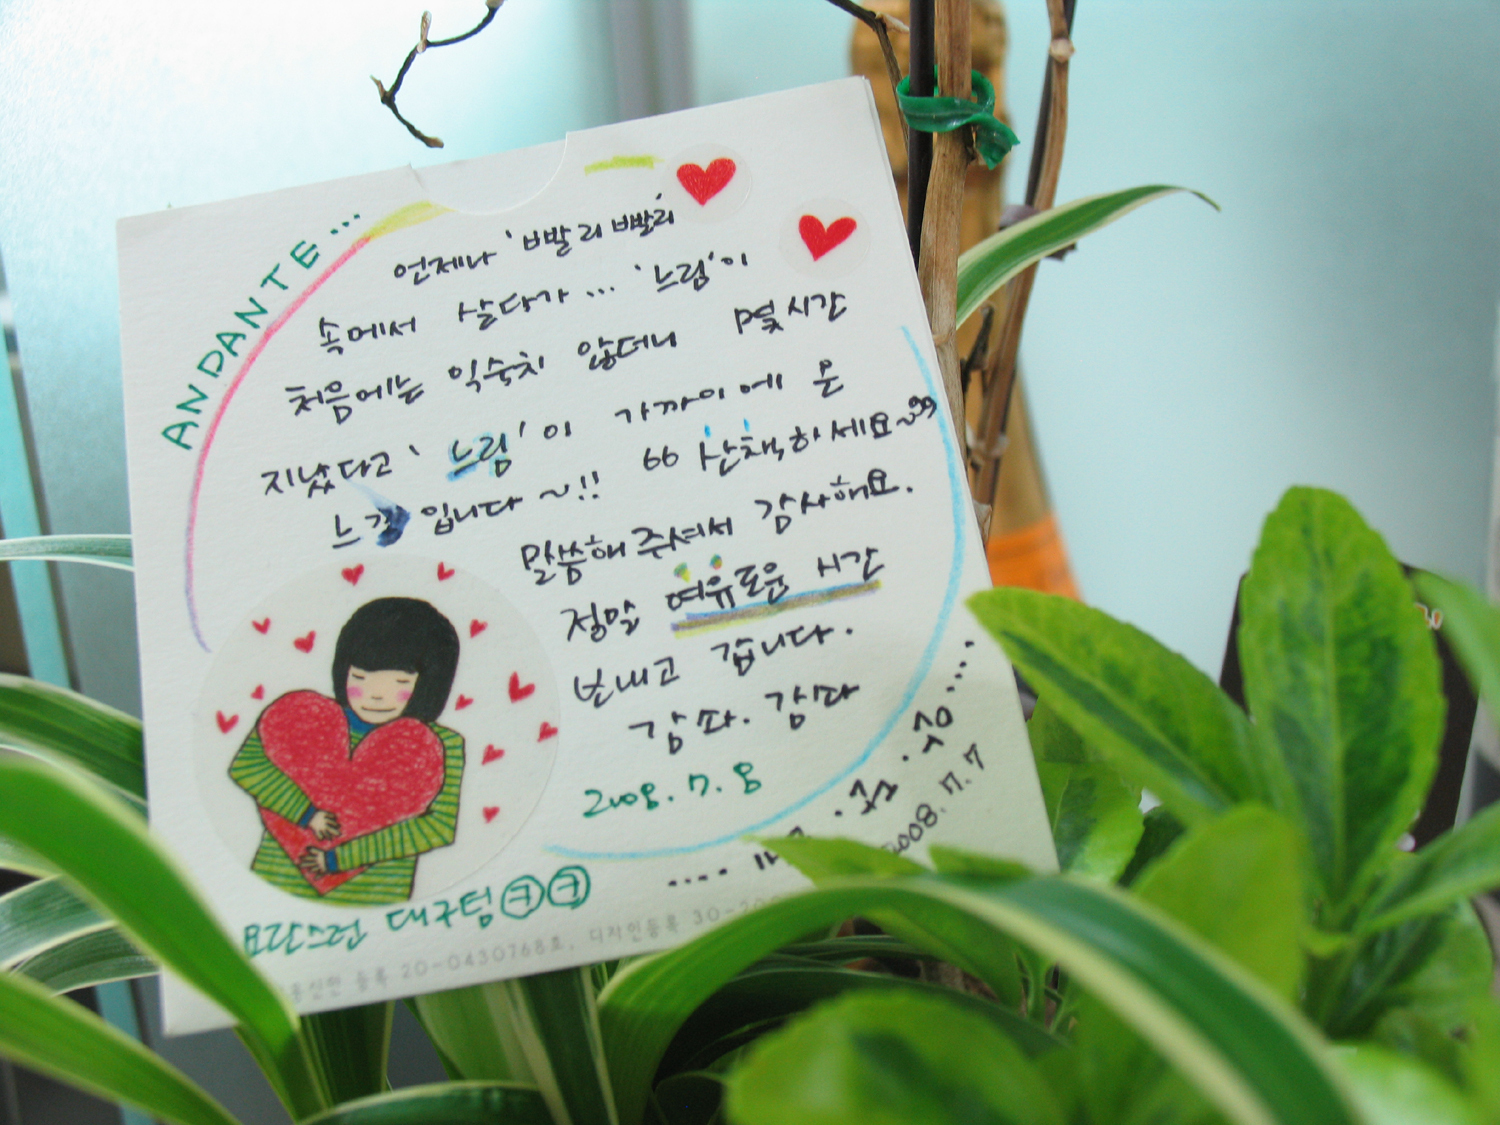 ANDANTE...
언제나 '빠발리 빠발리'
속에서 살다가... '느림'이
처음에는 익숙치 않더니 몇시간
지났다고 '느림'이 가까이에 온
느낌입니다~!! 66 산책하세요~99
말씀해 주셔서 감사해요.
정말 여유로운 시간
보내고 갑니다.
감솨. 감솨
2008. 7. 8
2008.7.7
요란스런 대구텀 ㉪㉪
등록 20-0430768호, 디자인등록 30-20